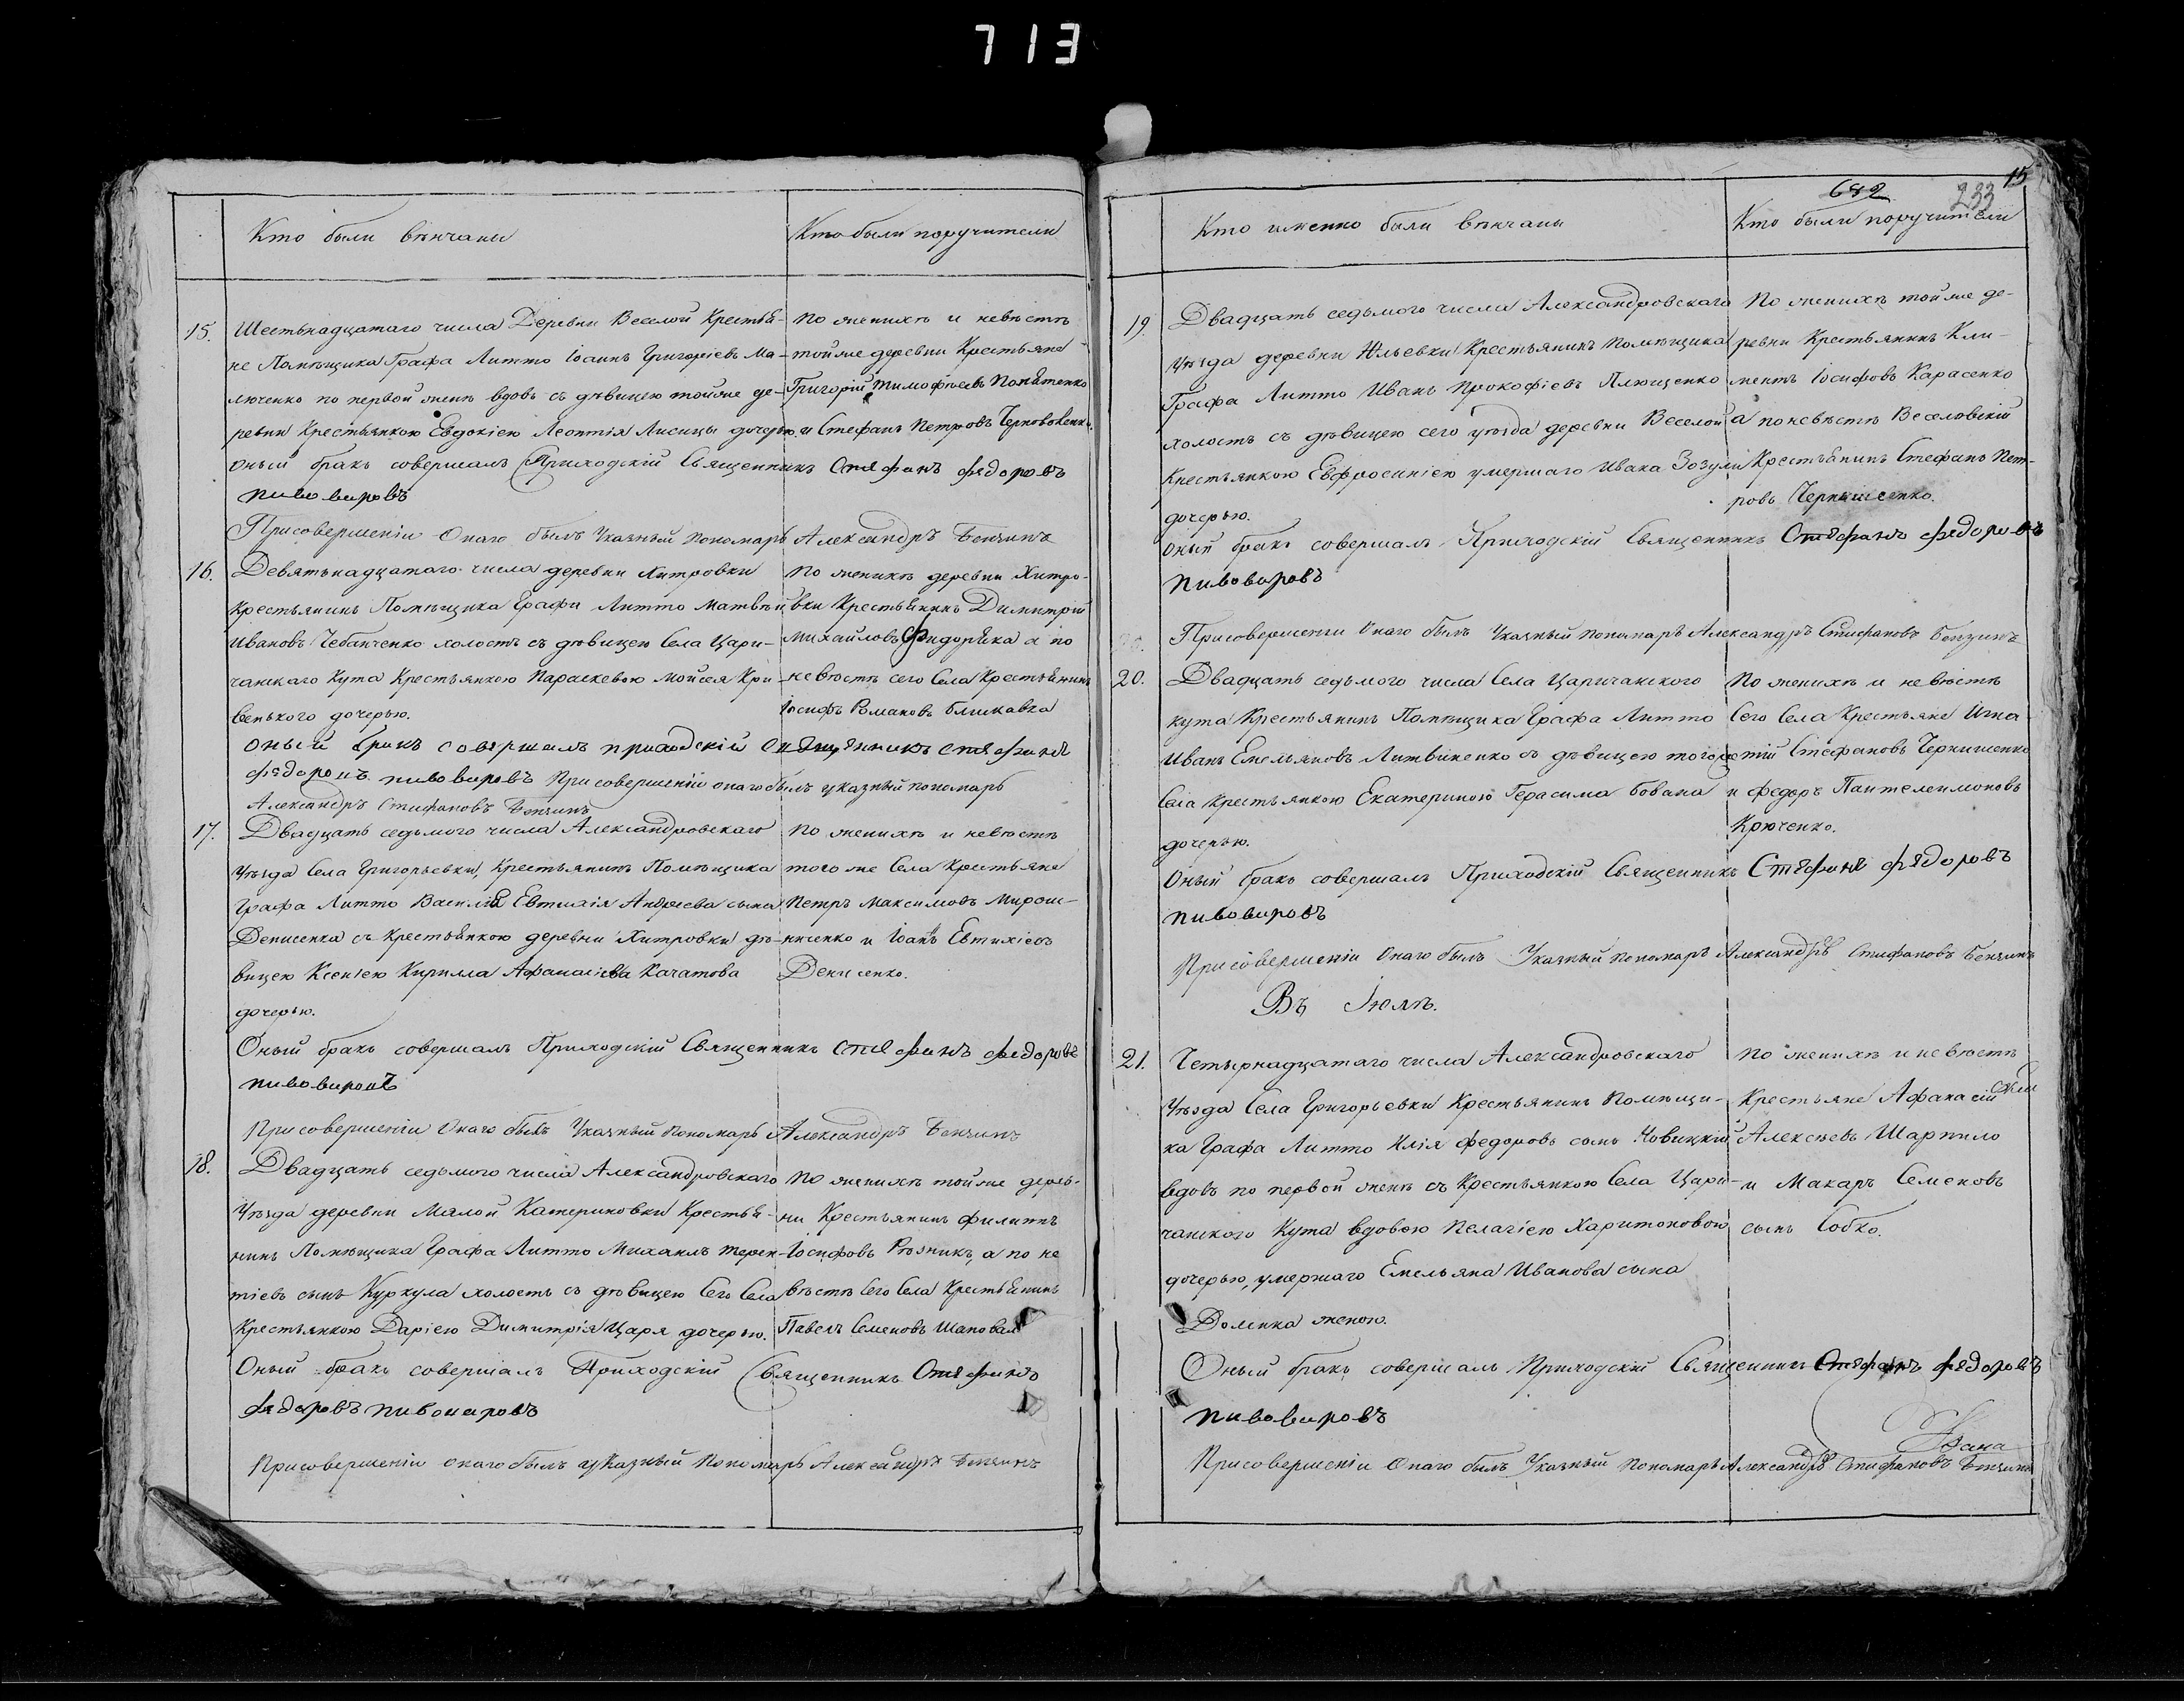 713
Кто были вѣнчаны
Кто были поручители
15.
Шестьнадцатаго числа Деревни Веселой Крестья-
не Помѣщика Графа Литто Іоаннъ Григоріевъ Ма-
люченко по первой женѣ вдовъ съ дѣвицею тойже де-
ревни Крестьянкою Евдокіею Леонтія Лисицы дочерью.
По женихѣ и невѣстѣ
тойже деревни Крестьяне
Григорій Тимофѣевъ
и Стефанъ Петровъ
Оный бракъ совершалъ Приходскій Священникъ Стефанъ Федоровъ
Пивоваровъ
Присовершеніи Онаго былъ Указный пономарь Александръ
16.
Девятьнадцатаго числа деревни Хитровки
Крестьянинъ Помѣщика Графа Литто Матвѣй
Ивановъ Чебанченко холостъ съ дѣвицею Села Цари-
чанскаго Кута Крестьянкою Параскевою Мойсея Кри-
венького дочерью.
По женихѣ деревни Хитро-
вки Крестьянинъ Димитрій
Михайловъ а по
невѣстѣ сего Села Крестьянинъ
Іосифъ Романовъ Блискавка
Оный бракъ совершалъ приходскій Священникъ Стефанъ
Федоровъ Пивоваровъ Присовершеніи онаго былъ указный пономарь
Александръ Стефановъ
17.
Двадцать седьмого числа Александровскаго
Уѣзда Села Григорьевки, Крестьянинъ Помѣщика
Графа Литто Василій Евтихія Андреева сына
Денисенка съ Крестьянкою деревни Хитровки дѣ-
вицею Ксеніею Кирилла Афанасіева Качатова
дочерью.
По женихѣ и невѣстѣ
того же Села Крестьяне
Петръ Максимовъ Мирош-
ниченко и Іоаннъ Евтихіевъ
Денисенко.
Оный бракъ совершалъ Приходскій Священникъ Стефанъ Федоровъ
Пивоваровъ
Присовершеніи Онаго былъ Указный пономарь Александръ
18.
Двадцать седьмого числа Александровскаго
Уѣзда деревни Малой Катериновки Крестья-
нинъ Помѣщика Графа Литто Михаилъ Терен-
тіевъ сынъ Куркула холостъ съ дѣвицею Сего Села
Крестьянкою Даріею Димитрія Царя дочерью.
По женихѣ тойже дерев-
ни Крестьянинъ Филиппъ
Іосифовъ Рѣзникъ, а по не
вѣстѣ Сего Села Крестьянинъ
Павелъ Семеновъ Шаповал
Оный бракъ совершалъ Приходскій Священникъ Стефанъ
Федоровъ Пивоваровъ
Присовершеніи онаго былъ указный пономарь Александръ
15
642
233
Кто именно были вѣнчаны
Кто были поручители
19.
Двадцать седьмого числа Александровскаго
Уѣзда деревни Ильевки Крестьянинъ Помѣщика
Графа Литто Иванъ Прокофіевъ Плющенко
холостъ съ дѣвицею сего уѣзда деревни Веселой
Крестьянкою Евфросиніею умершаго Ивана Зозули
дочерью.
По женихѣ тойже де-
ревни Крестьянинъ Кли-
ментъ Іосифовъ Карасенко
а по невѣстѣ Веселовскій
Крестьянинъ Стефанъ Пет-
ровъ Чернышенко.
Оный бракъ совершалъ Приходскій Священникъ Стефанъ Федоровъ
Пивоваровъ
Присовершеніи Онаго былъ Указный пономарь Александръ Стефановъ
20.
Двадцать седьмого числа Села Царичанского
Кута Крестьянинъ Помѣщика Графа Литто
Иванъ Емельяновъ Литвиненко съ дѣвицею того
Села Крестьянкою Екатериною Герасима Бована
дочерью.
По женихѣ и невѣстѣ
Сего Села Крестьяне Игна
тій Стефановъ Чернишенко
и Федоръ Пантелеимоновъ
Крюченко.
Оный бракъ совершалъ Приходскій Священникъ Стефанъ Федоровъ
Пивоваровъ
Присовершеніи Онаго былъ Указный пономарь Александръ Стефановъ
Въ Іюлѣ.
21.
Четырнадцатаго числа Александровскаго
Уѣзда Села Григорьевки Крестьянинъ Помѣщи-
ка Графа Литто Илія Федоровъ сынъ Човицкій
вдовъ по первой женѣ съ Крестьянкою Села Цари-
чанского Кута вдовою Пелагіею Харитоновою
дочерью, умершаго Емельяна Иванова сына
Доленка женою.
По женихѣ и невѣстѣ
Крестьяне Афанасій
Алексѣевъ Шарпило
и Макаръ Семеновъ
сынъ Собко.
Оный бракъ совершалъ Приходскій Священникъ Стефанъ Федоровъ
Пивоваровъ
Присовершеніи Онаго былъ Указный пономарь Александръ Стефановъ